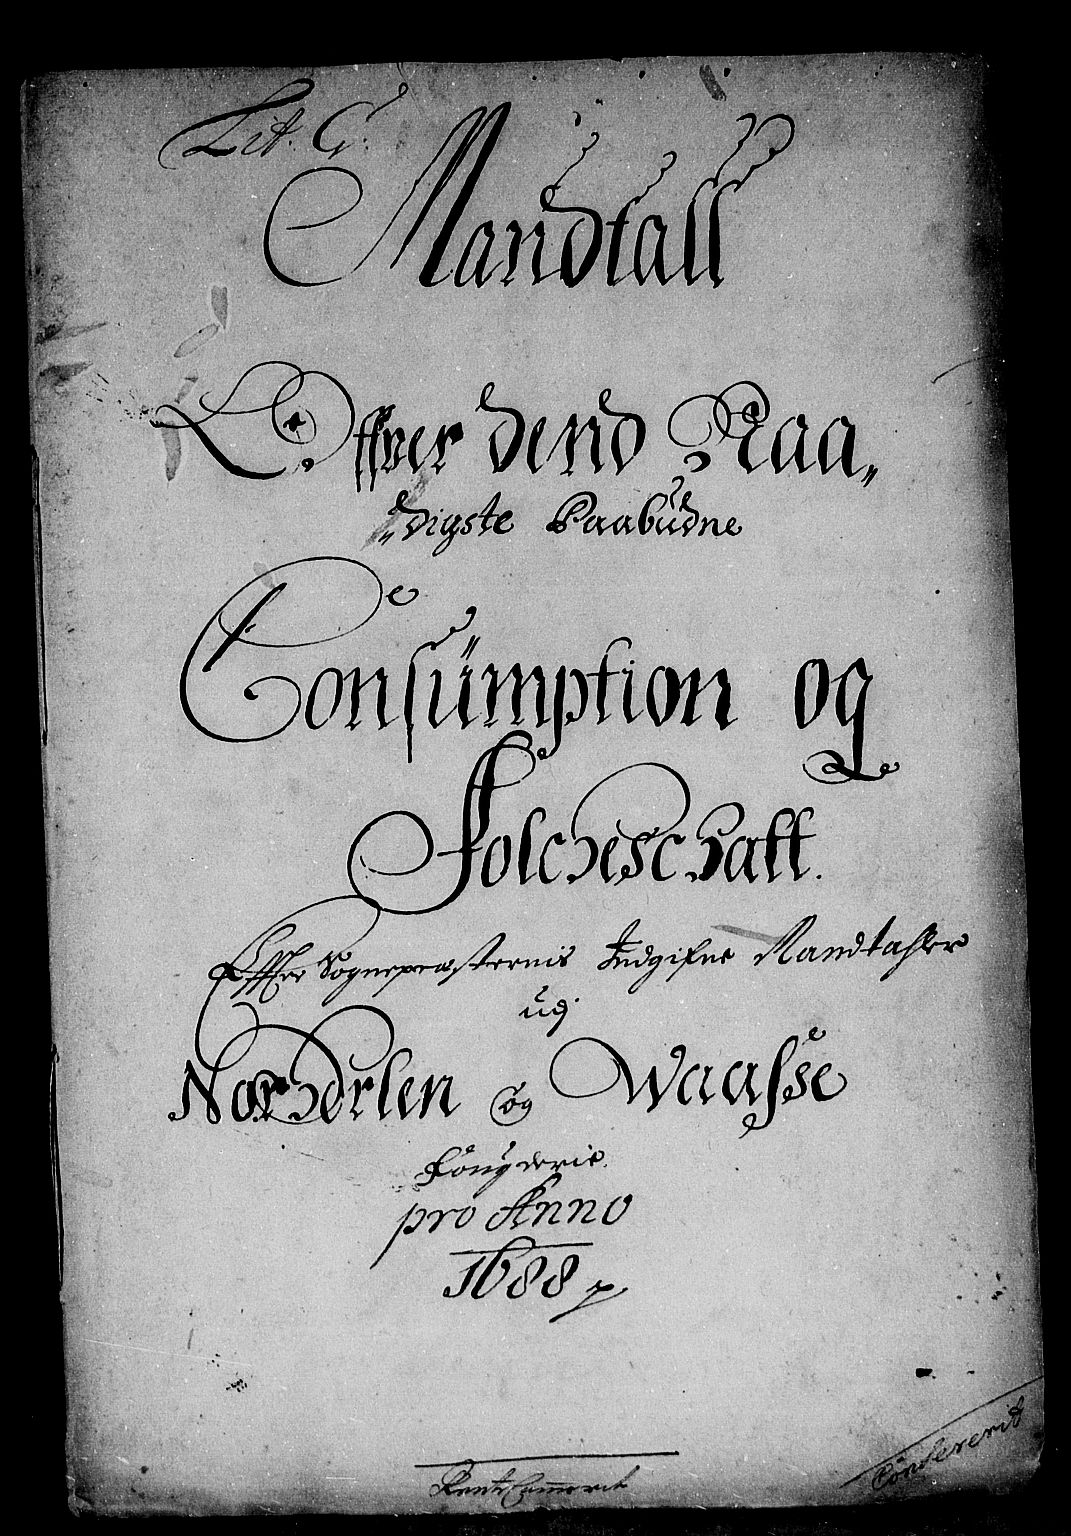 Lit. G.
Mandtall
Offver dend Naa„
„digste Paabüdne
Consümption og
Folcheschatt.
Effter Sognepræsternis Indgifne Mandtahler
udj
Norderlen og Waasse
Fougderie.
pro Anno
1688 p
Rente Cammerit
Confererit